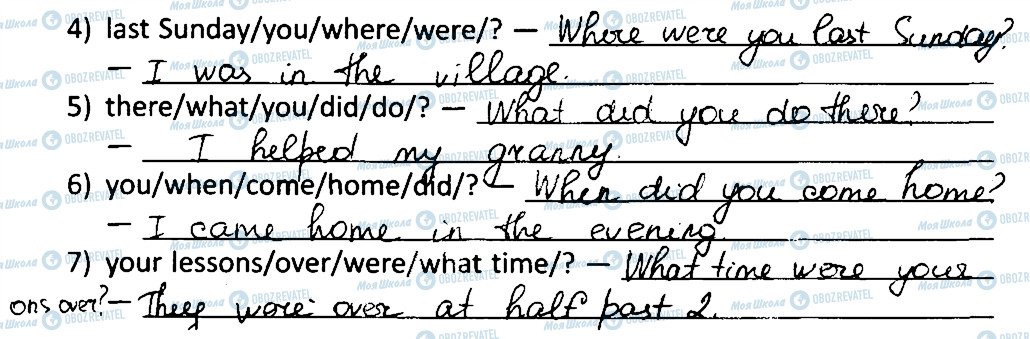 4) last Sunday/you/where/were/? – Where were you last Sunday?
– I was in the village.
5) there/what/you/did/do/? – What did you do there?
– I helped my granny.
6) you/when/come/home/did/? – When did you come home?
– I came home in the evening.
7) your lessons/over/were/what time/? – What time were your
ons over? – They were over at half past 2.